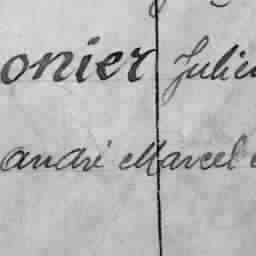 onier Julien
andré Marcel